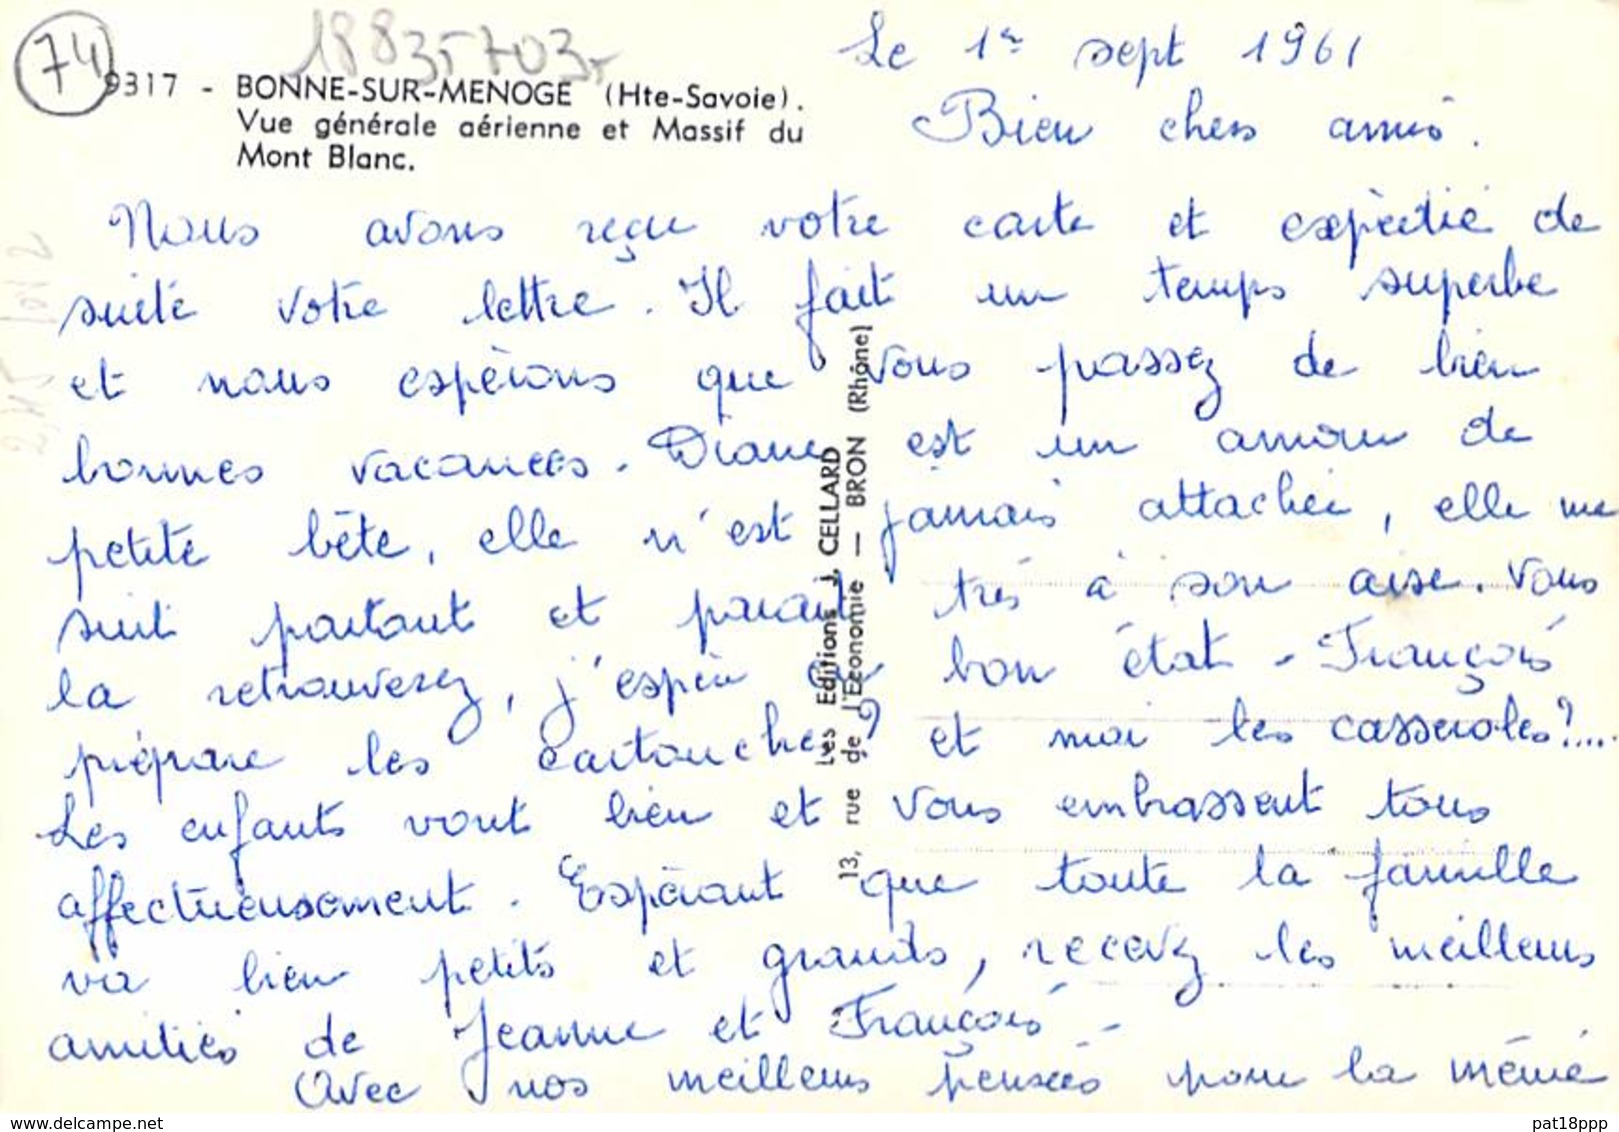 74
18835703
9317 - BONNE-SUR-MENOGE (Hte-Savoie).
Vue générale aérienne et Massif du
Mont Blanc.
Le 1er sept 1961
Bien chers amis.
Nous avons reçu votre carte et expédié de
suite votre lettre. Il fait un temps superbe
et nous espérons que vous passez de bien
bonnes vacances. Diane est un amour de
petite bête, elle n'est jamais attachée, elle me
suit partout et parait très à son aise. Vous
la retrouverez, j'espère en bon état - François
prépare les cartouches? et moi les casseroles?....
Les enfants vont bien et vous embrassent tous
affectueusement. Espérant que toute la famille
va bien petits et grands, recevez les meilleures
amitiés de Jeanne et François -
Avec nos meilleures pensées pour la mémé
Les Editions J. CELLARD
13, rue de l'Economie — BRON (Rhône)
www.delcampe.net
pat18ppp